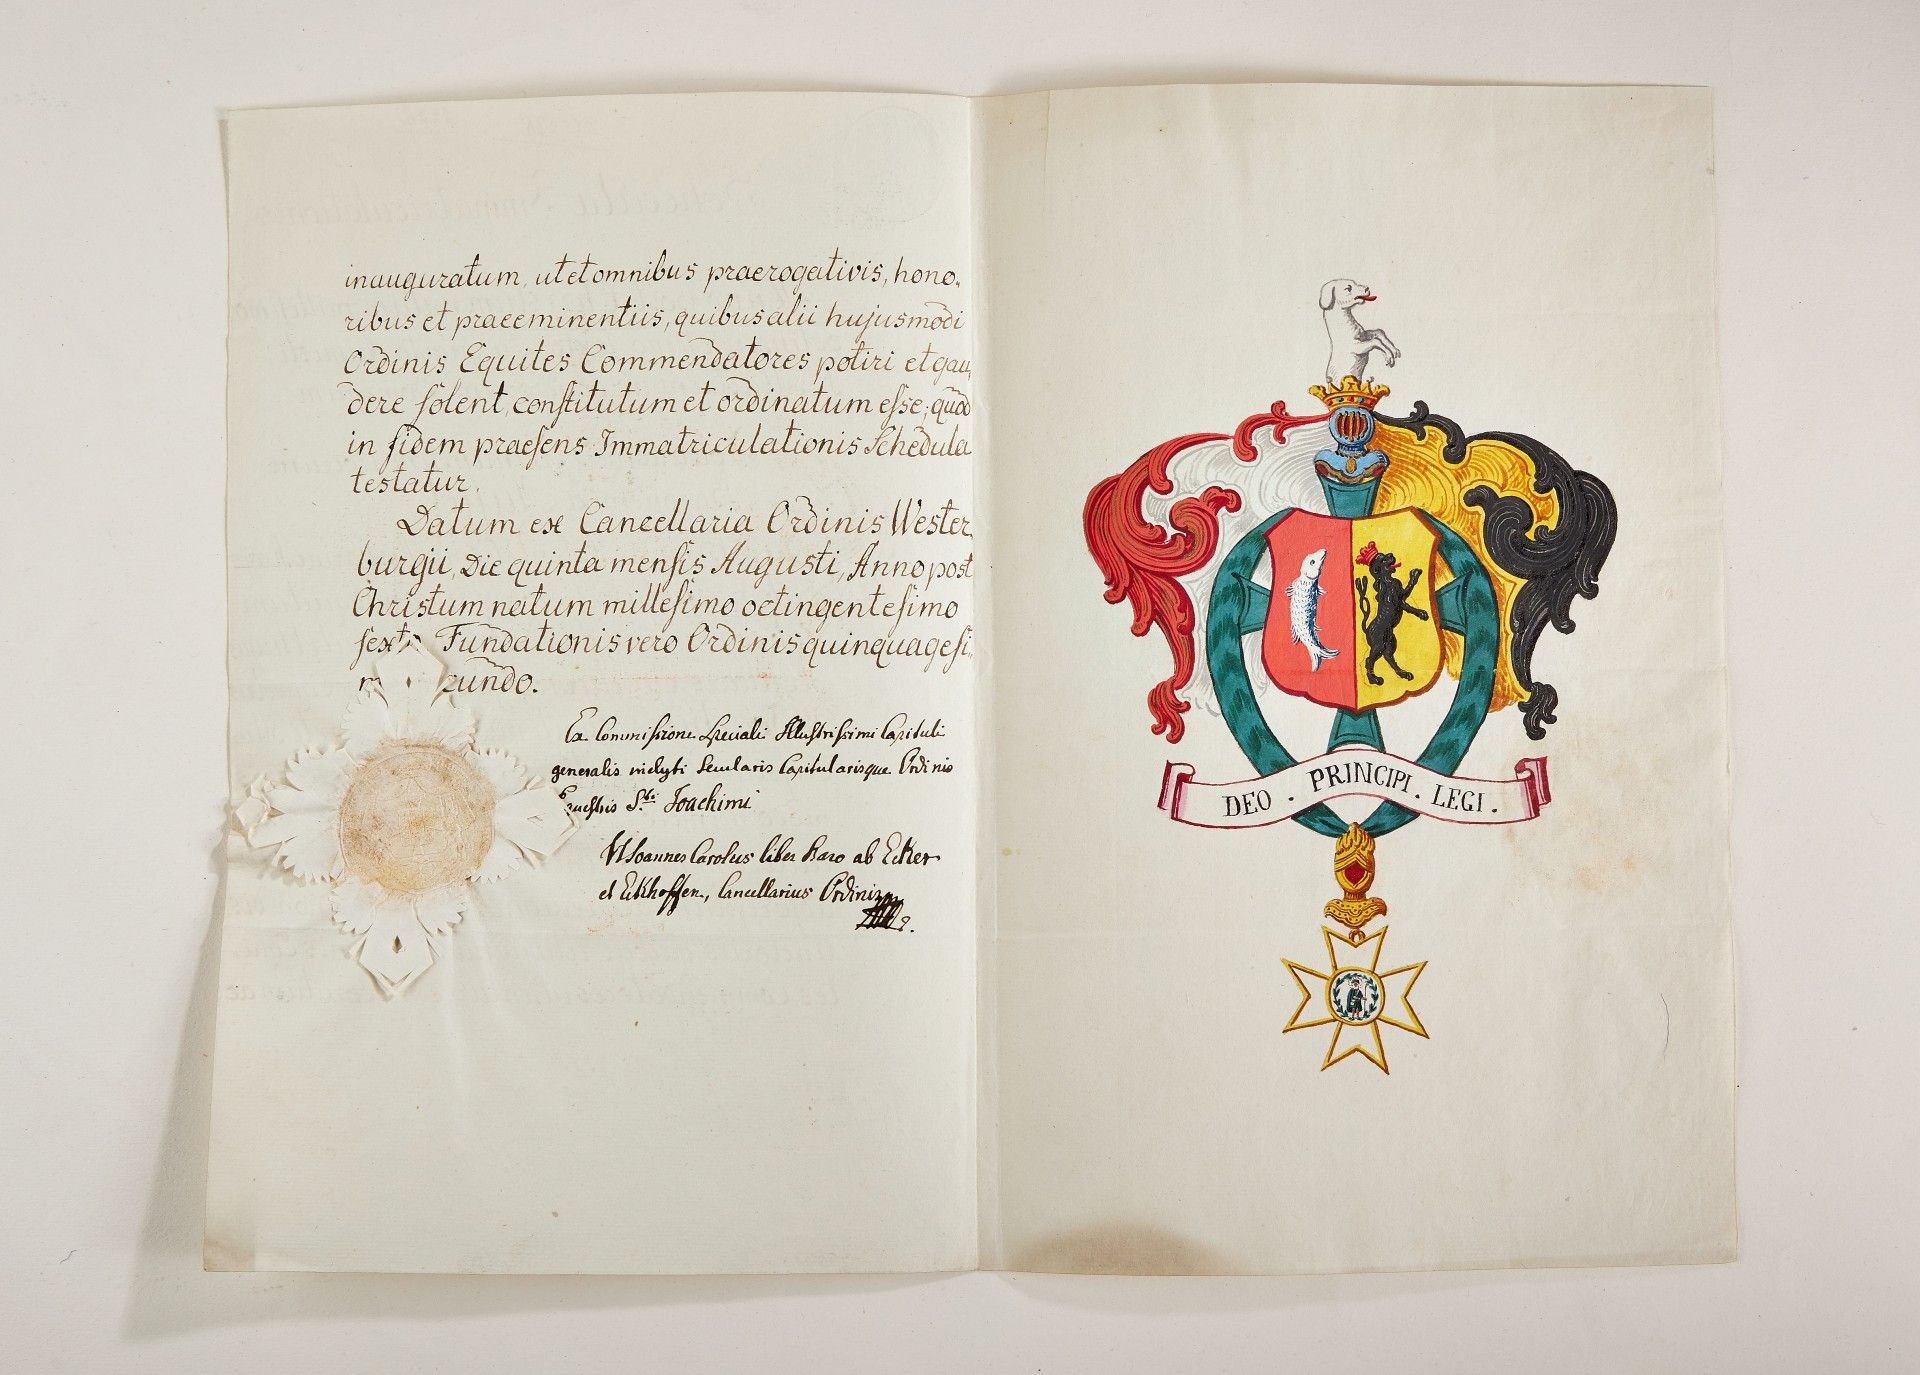 inauguratum, ut et omnibus praerogativis, hono-
ribus et praeeminentiis, quibus alii hujusmodi
Ordinis Equites Commendatores potiri et gau-
dere solent, constitutum et ordinatum esse; quod
in fidem praesens Immatriculationis Schedula
testatur.
Datum ex Cancellaria Ordinis Wester
burgii, Die quinta mensis Augusti, Anno post
Christum natum millesimo octingentesimo
sexto Fundationis vero Ordinis quinquagesi-
m cundo.
Ex Commissione Speciali Illustrissimi Capituli
generalis inclyti Secularis Capitularisque Ordinis
Equestris Sti. Joachimi
Joannes Carolus liber Baro ab Ecker
et Eckhoffen, Cancellarius Ordinis
DEO . PRINCIPI . LEGI .